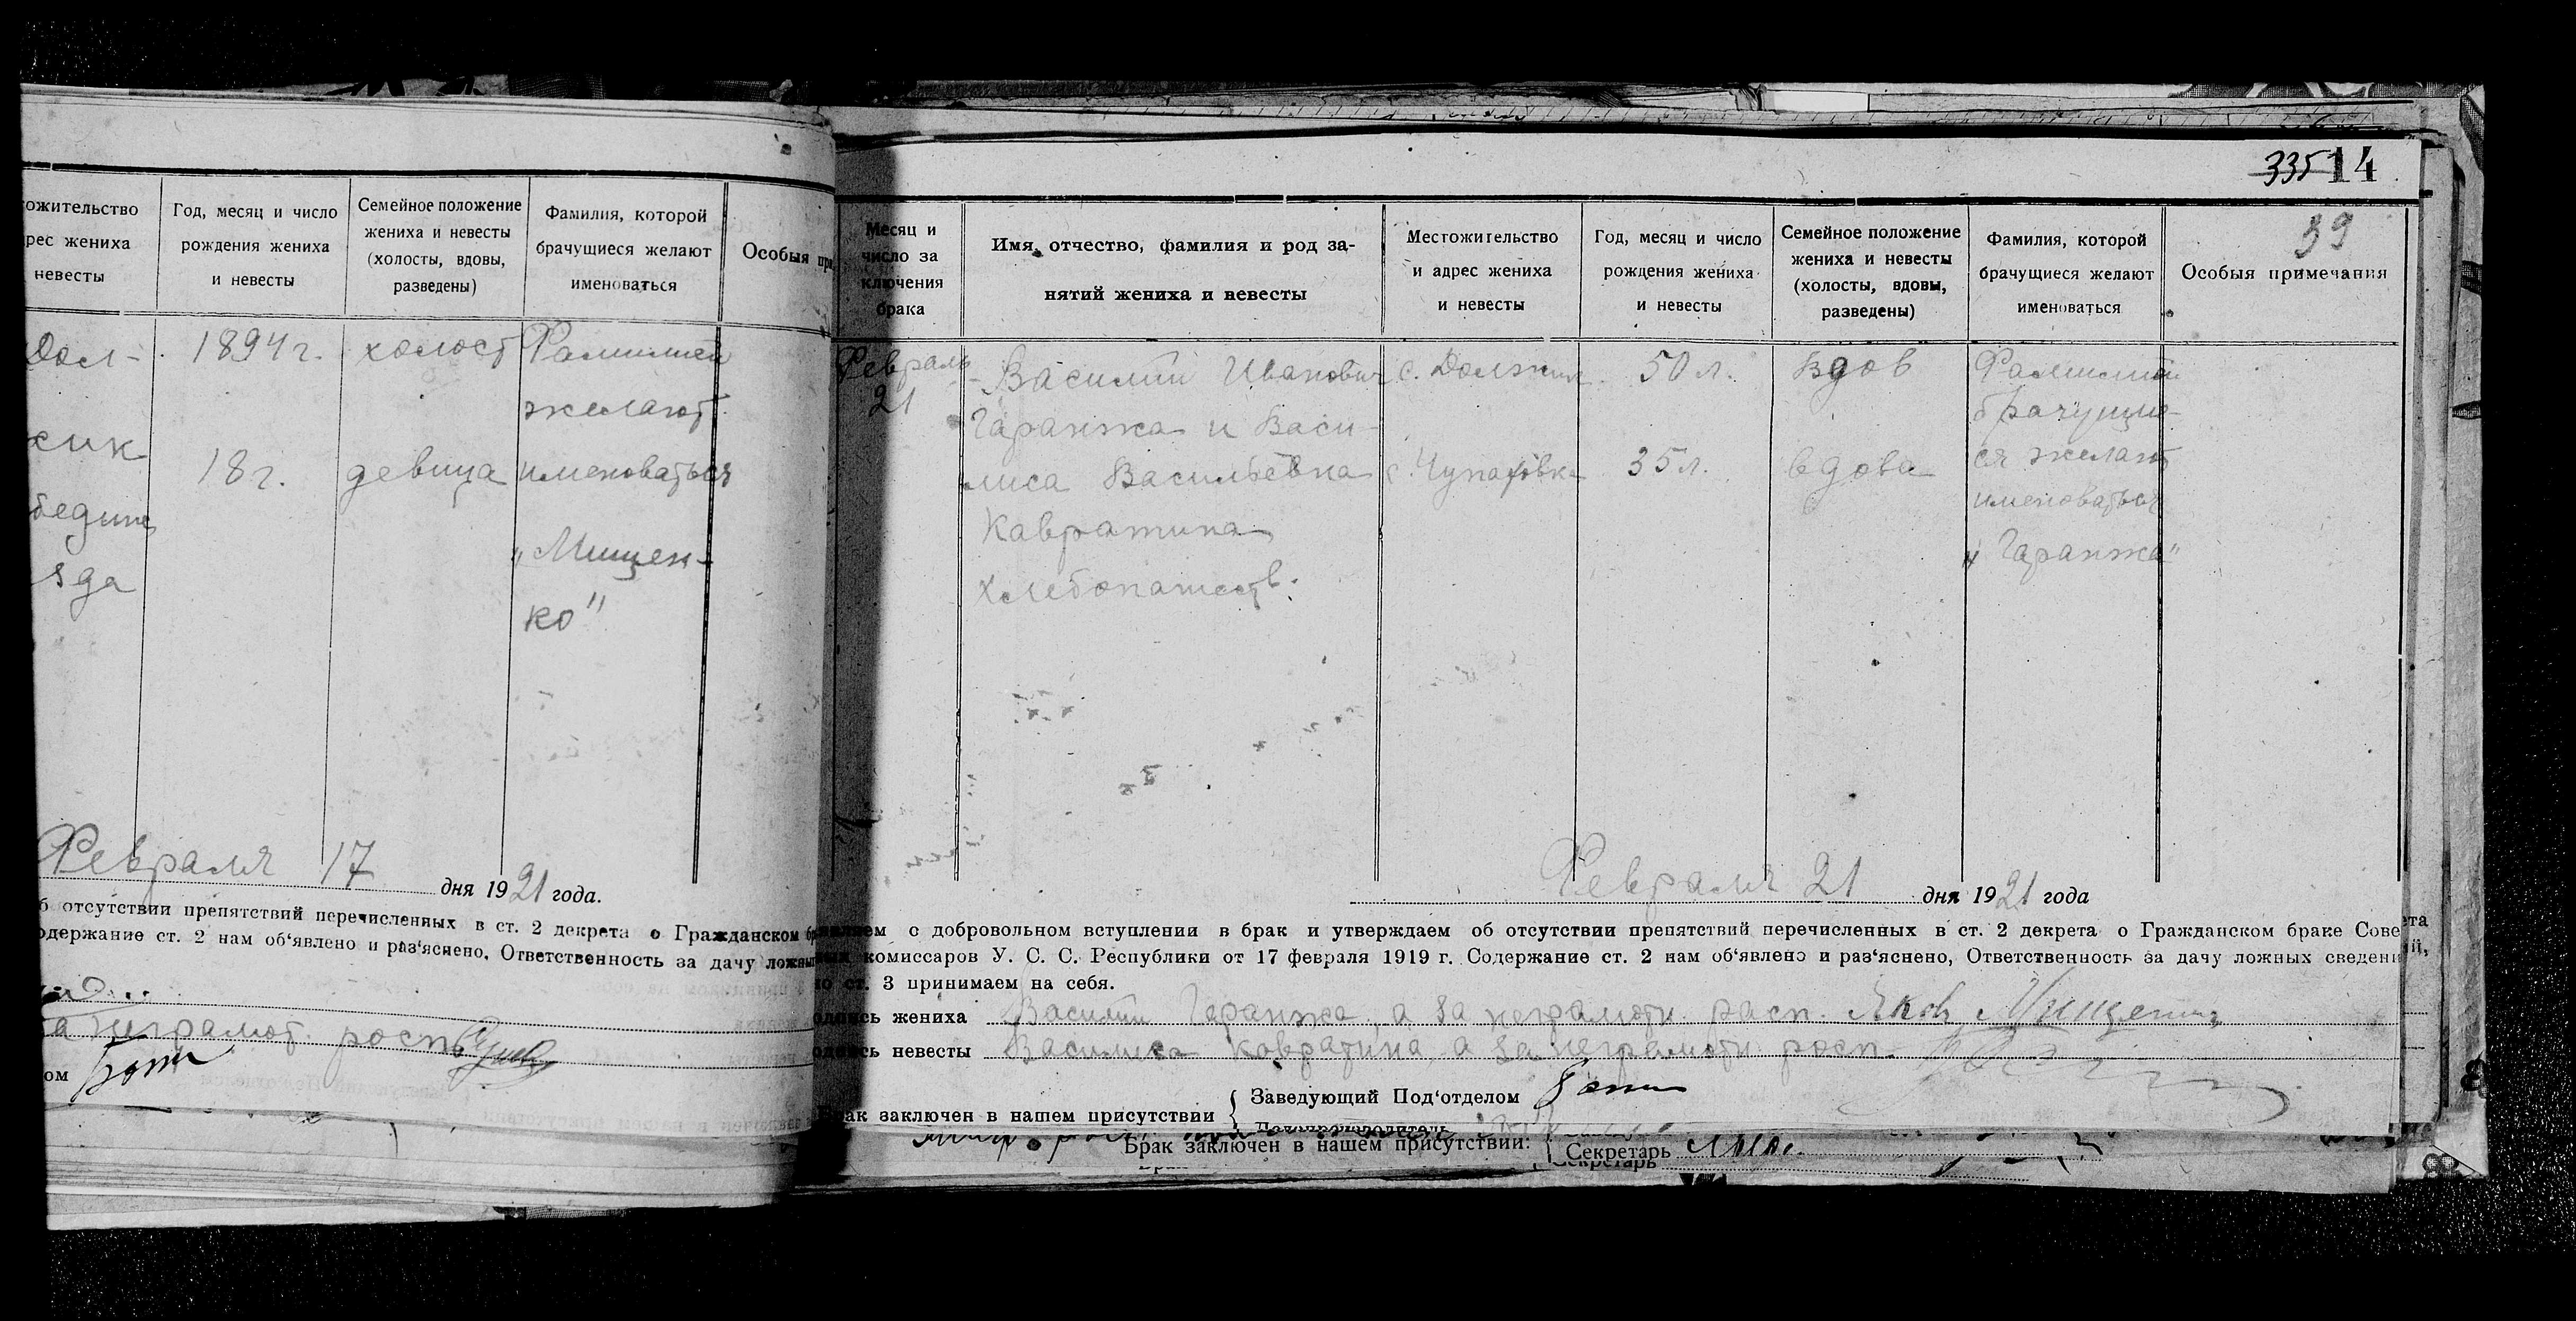 ожительство
рес жениха
невесты
Год, месяц и число
рождения жениха
и невесты
Семейное положение
жениха и невесты
(холосты, вдовы,
разведены)
Фамилия, которой
брачущиеся желают
именоваться
Особыя при
Дол-
1894 г.
холост
Фамилией
желают
18 г.
девица
именоваться
"Мищен-
ко"
Февраля 17 дня 1921 года.
б отсутствии препятствий перечисленных в ст. 2 декрета о Гражданском бр
одержание ст. 2 нам об‘явлено и раз‘яснено, Ответственность за дачу ложны
за неграмот. росп.
ом
335 14
39
Месяц и
число за
ключения
брака
Имя, отчество, фамилия и род за-
нятий жениха и невесты
Местожительство
и адрес жениха
и невесты
Год, месяц и число
рождения жениха
и невесты
Семейное положение
жениха и невесты
(холосты, вдовы,
разведены)
Фамилия, которой
брачущиеся желают
именоваться
Особыя примечания
Февраль
21
Василий Иванович
Гаранжа и Васи-
лиса Васильевна
Кавратина
хлебопашеств.
с.
с.
50 л.
35 л.
вдов
вдова
Фамилией
брачущие-
ся желают
именоваться
"Гаранжа"
Февраля 21 дня 1921 года
с добровольном вступлении в брак и утверждаем об отсутствии препятствий перечисленных в ст. 2 декрета о Гражданском браке Сове
комиссаров У. С. С. Республики от 17 февраля 1919 г. Содержание ст. 2 нам об‘явлено и раз‘яснено, Ответственность за дачу ложных сведени
но ст. 3 принимаем на себя.
одпись жениха Василий Гаранжа, а за неграмотн. расп. Яков Мищенко
одпись невесты Василиса Ковратина, а за неграмотн. росп.
Брак заключен в нашем присутствии
Заведующий Под‘отделом
Делопроизводитель
Брак заключен в нашем присутствии:
Секретарь
Секретарь